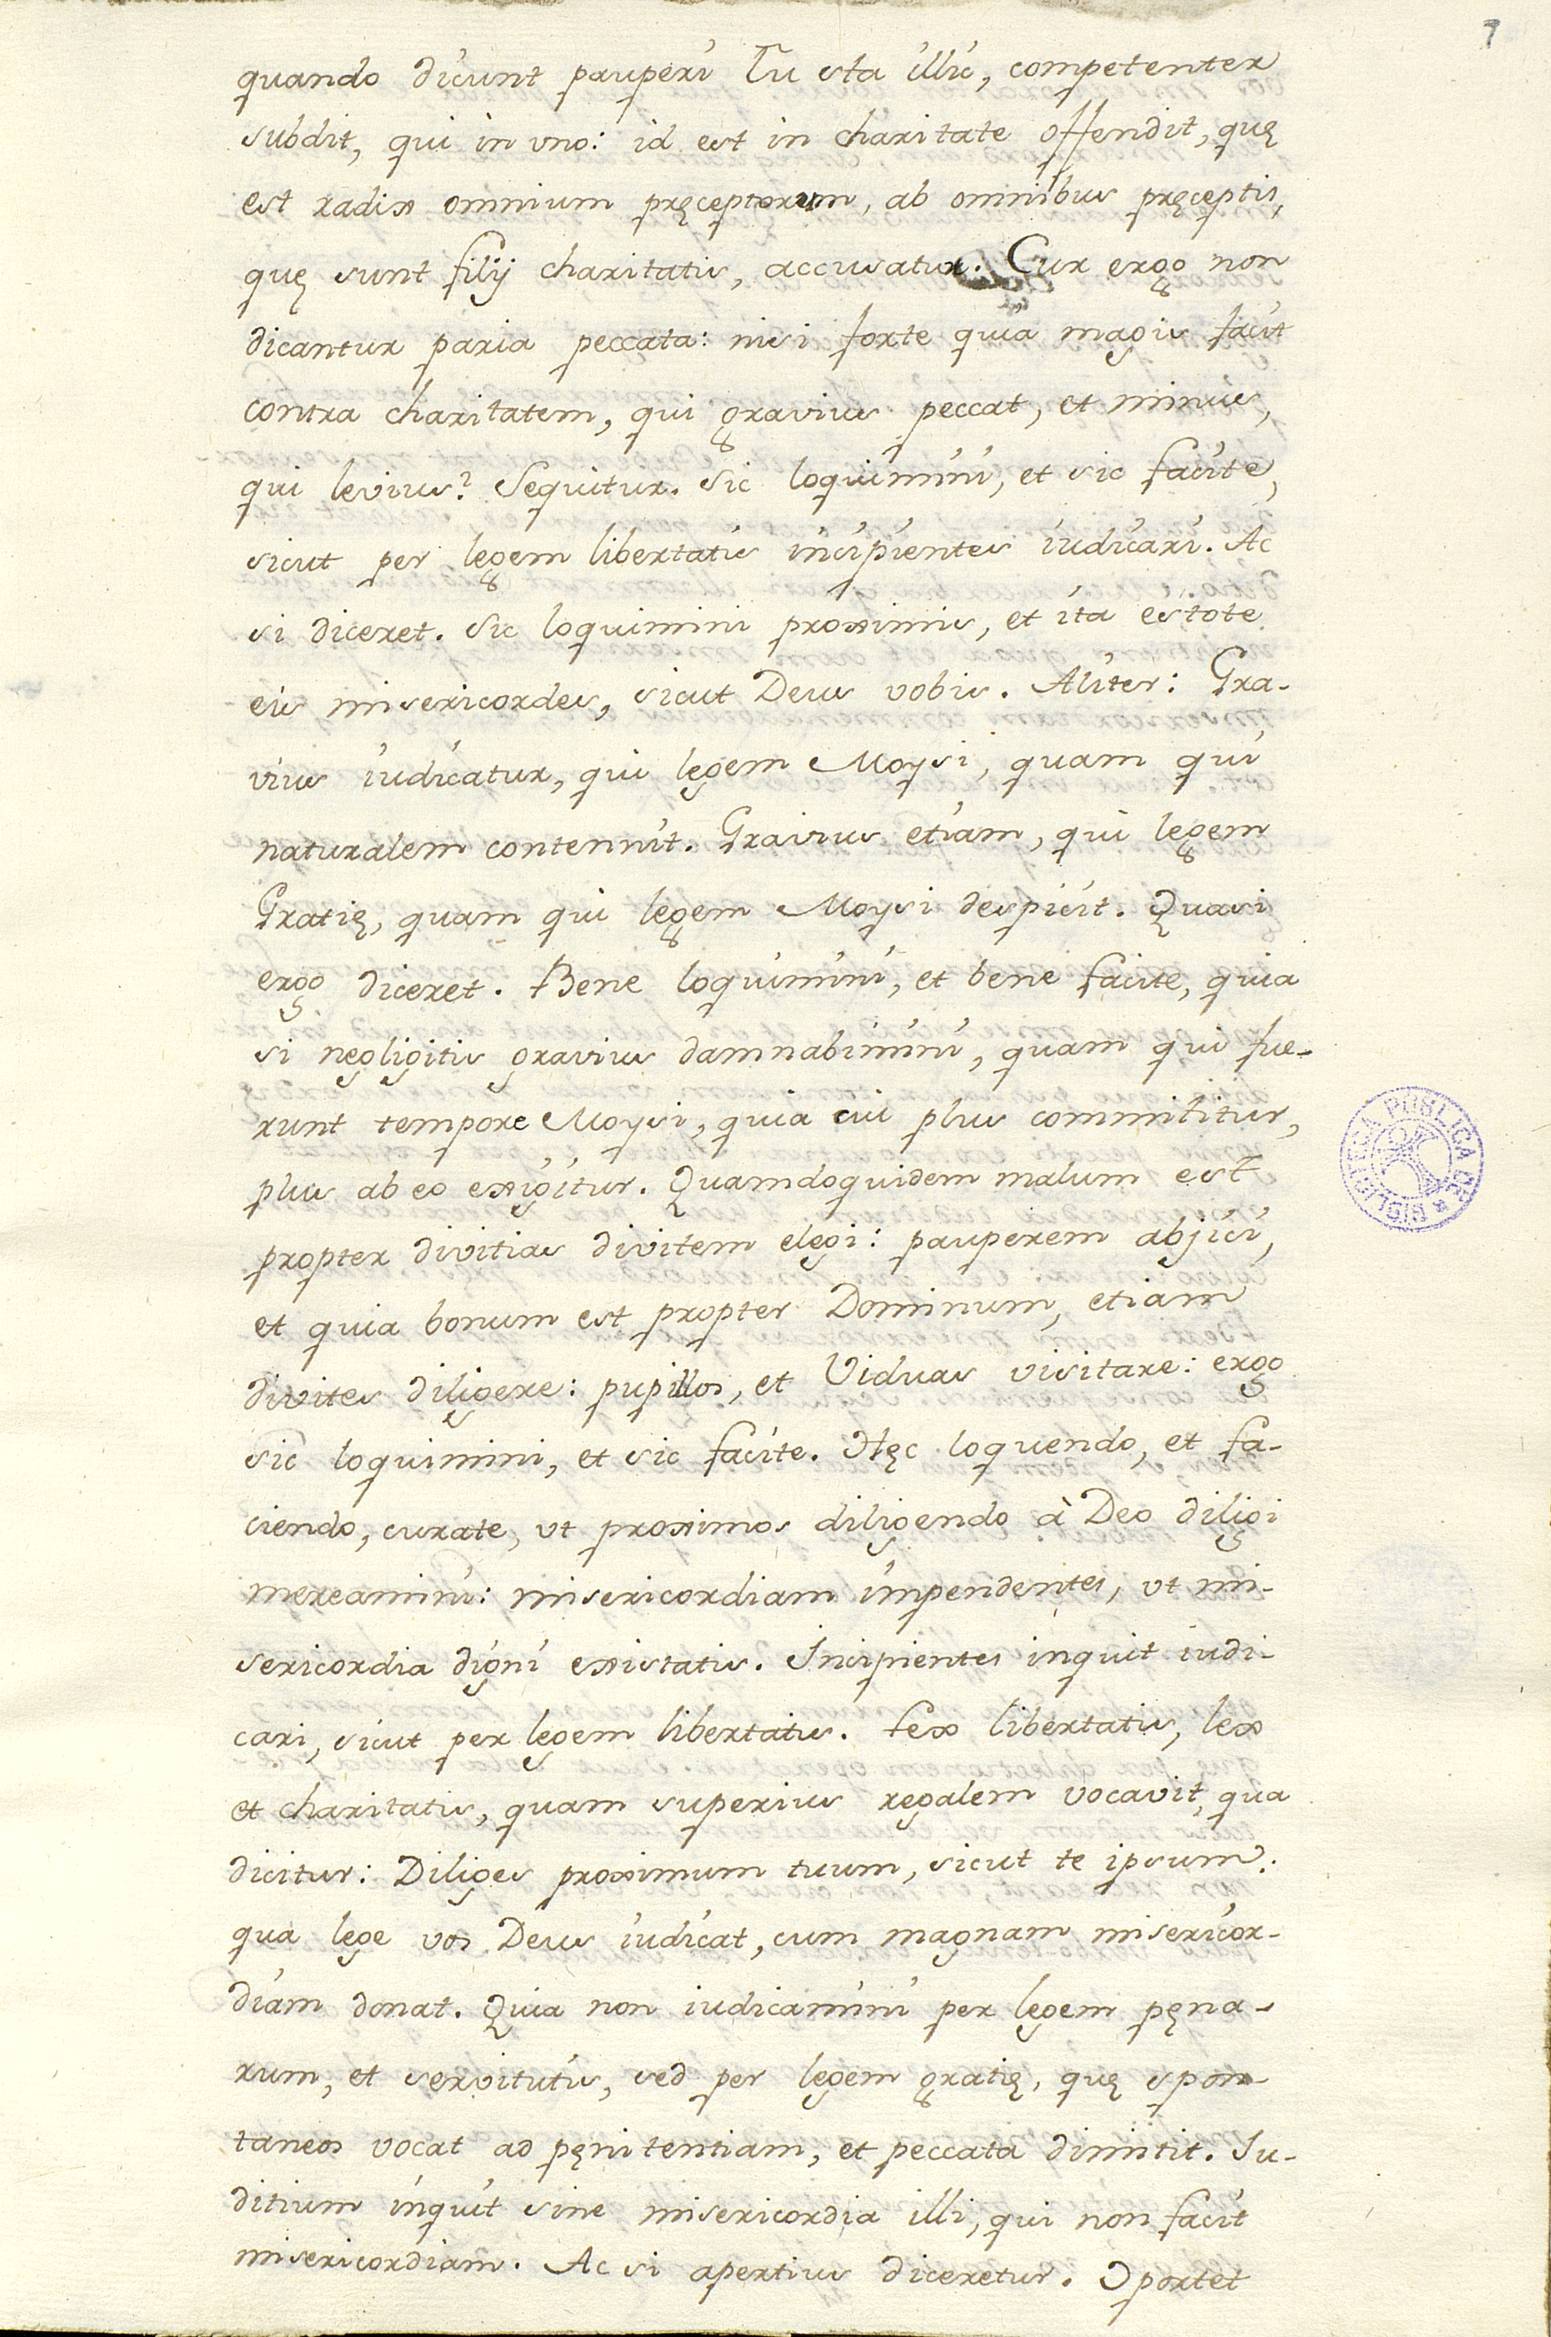 7
quando dicunt pauperi Tu sta illic, competenter
subdit, qui in vno: id est in charitate offendit, quę
est radix omnium pręceptorum, ab omnibus pręceptis,
quę sunt filij charitatis, accusatur. Cur ergo non
dicantur paria peccata: nisi forte quia magis facit
contra charitatem, qui gravius peccat, et minus,
qui levius? Sequitur. Sic loquimini, et sic facite,
sicut per legem libertatis incipientes iudicari. Ac
si diceret. Sic loquimini proximis, et ita estote
eis misericordes, sicut Deus vobis. Aliter: Gra-
vius iudicatur, qui legem Moysi, quam qui
naturalem contennit. Gravius etiam, qui legem
Gratię, quam qui legem Moysi despicit. Quasi
ergo diceret. Bene loquimini, et bene facite, quia
si negligitis gravius damnabimini, quam qui fue-
runt tempore Moysi, quia cui plus committitur,
plus ab eo exigitur. Quamdoquidem malum est
propter divitias divitem elegi: pauperem abjici,
et quia bonum est propter Dominum, etiam
divites diligere: pupillos, et Viduas visitare: ergo
sic loquimini, et sic facite. Hęc loquendo, et fa-
ciendo, curate, vt proximos diligendo à Deo diligi
mereamini: misericordiam impendentes, vt mi-
sericordia digni existatis. Incipientes inquit iudi-
cari, sicut per legem libertatis. Lex libertatis, lex
et charitatis, quam superius regalem vocavit, qua
dicitur: Diliges proximum tuum, sicut te ipsum:
qua lege vos Deus iudicat, cum magnam misericor-
diam donat. Quia non iudicamini per legem pęna-
rum, et servitutis, sed per legem gratię, quę spon-
taneos vocat ad pęnitentiam, et peccata dimitit. Iu-
ditium inquit sine misericordia illi, qui non facit
misericordiam. Ac si apertius diceretur. Oportet
BIBLIOTECA PUBLICA DE